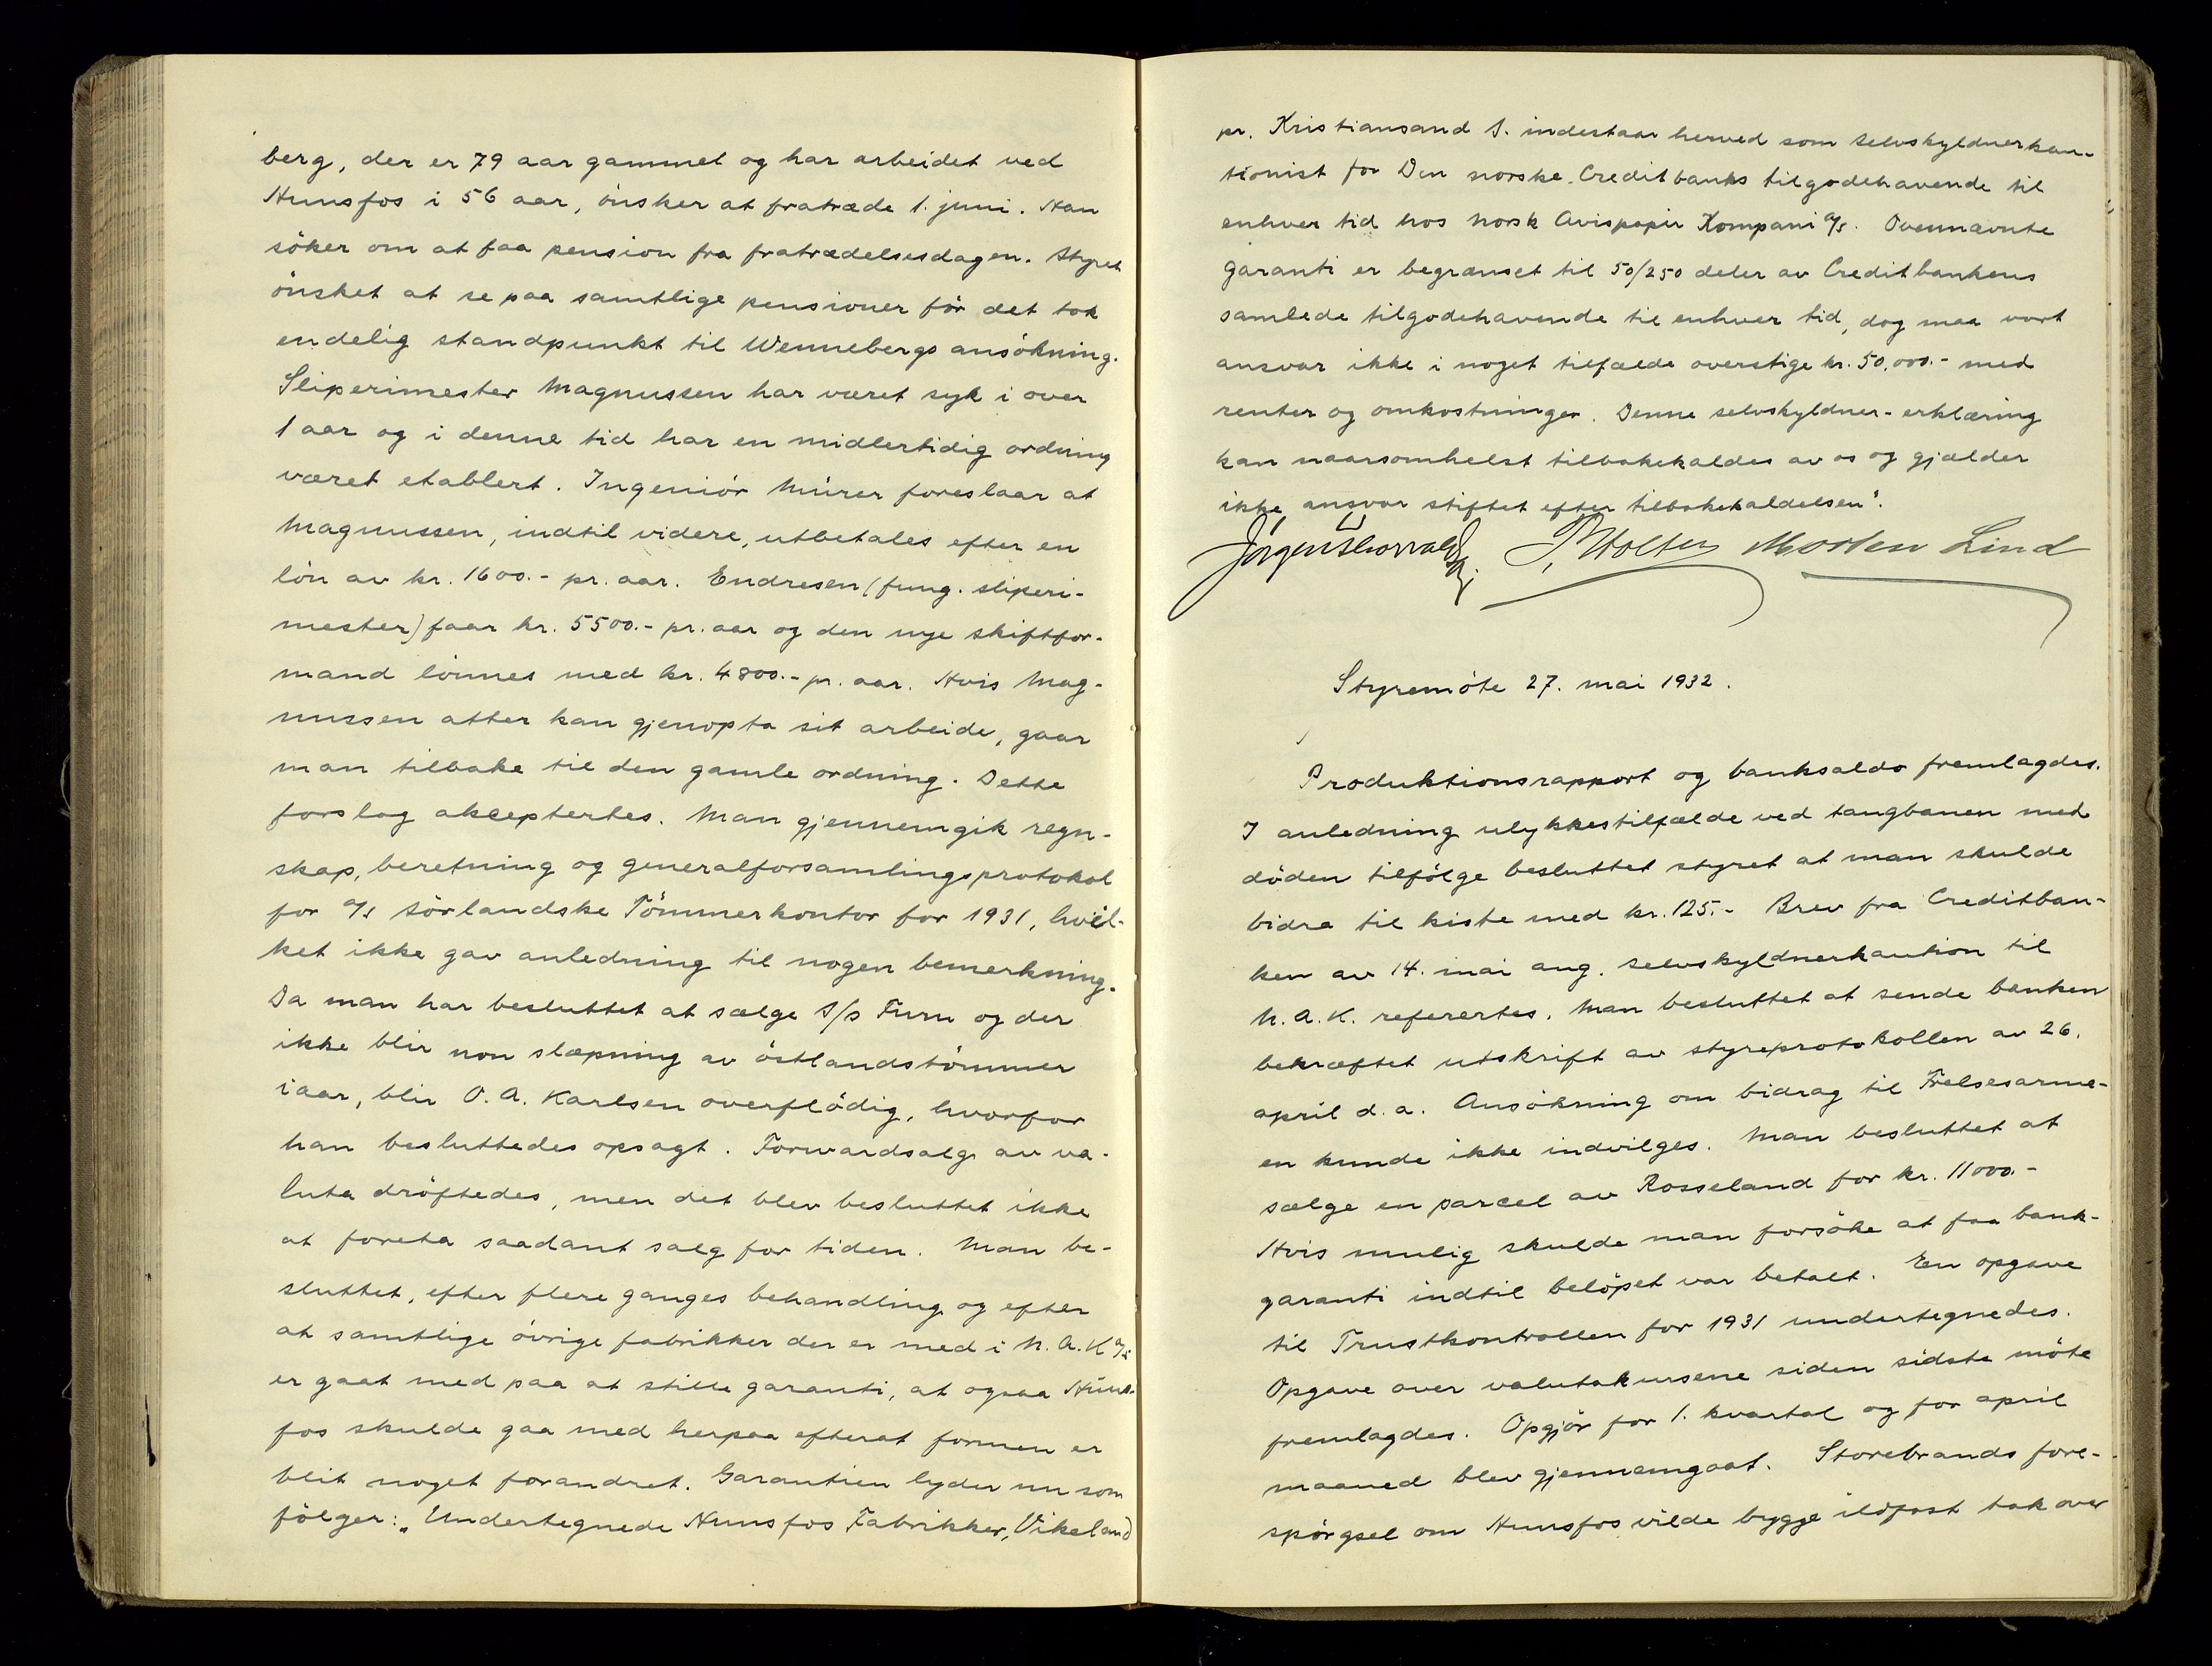 berg, der er 79 aar gammel og har arbeidet ved
Hunsfos i 56 aar, önsker at fratræde 1. juni. Han
söker om at faa pension fra fratrædelsesdagen. Styret
önsket at se paa samtlige pensioner för det tok
endelig standpunkt til Wennebergs ansökning.
Sliperimester Magnussen har været syk i over
1 aar og i denne tid har en midlertidig ordning
været etablert. Ingeniör Mürer foreslaar at
Magnussen, indtil videre, utbetales efter en
lön av kr. 1600.- pr. aar. Endresen (fung. sliperi-
mester) faar kr. 5500.- pr. aar og den nye skiftfor-
mand lönnes med kr. 4800.- pr. aar. Hvis Mag-
nussen atter kan gjenopta sit arbeide, gaar
man tilbake til den gamle ordning. Dette
forslag akseptertes. Man gjennemgik regn-
skap, beretning og generalforsamlingsprotokol
for A/S Sörlandske Tömmerkontor for 1931, hvil-
ket ikke gav anledning til nogen bemerkning.
Da man har besluttet at sælge S/S Furu og der
ikke blir non slæpning av östlandstömmer
iaar, blir O. A. Karlsen overflödig, hvorfor
han besluttedes opsagt. Forwardsalg av va-
luta dröftedes, men det blev besluttet ikke
at foreta saadant salg for tiden. Man be-
sluttet, efter flere ganges behandling og efter
at samtlige övrige fabrikker der er med i N. A. K A/S
er gaat med paa at stille garanti, at ogsaa Huns-
fos skulde gaa med herpaa efterat formen er
blit noget forandret. Garantien lyder nu som
fölger: „Undertegnede Hunsfos Fabrikker, Vikeland
pr. Kristiansand S. indestaar herved som selvskyldnerkau-
tionist for Den norske Creditbanks tilgodehavende til
enhver tid hos Norsk Avispapir Kompani A/S. Ovennævnte
garanti er begrænset til 50/250 deler av Creditbankens
samlede tilgodehavende til enhver tid, dog maa vort
ansvar ikke i noget tilfælde overstige kr. 50.000.- med
renter og omkostninger. Denne selvskyldner-erklæring
kan naarsomhelst tilbakekaldes av os og gjælder
ikke ansvar stiftet efter tilbakekaldelsen".
Morten Lind
Styremöte 27. mai 1932.
Produktionsrapport og banksaldo fremlagdes.
I anledning ulykkestilfælde ved tangbanen med
döden tilfölge besluttet styret at man skulde
bidra til kiste med kr. 125.- Brev fra Creditban-
ken av 14. mai ang. selvskyldnerkaution til
N. A. K. refereertes. Man besluttet at sende banken
bekræftet utskrift av styreprotokollen av 26.
april d. a. Ansökning om bidrag til Frelsesarme-
en kunde ikke indvilges. Man besluttet at
sælge en parcel av Rosseland for kr. 11000.-
Hvis mulig skulde man forsöke at faa bank-
garanti indtil belöpet var betalt. En opgave
til Trustkontrollen for 1931 undertegnedes.
Opgave over valutakursene siden sidste möte
fremlagdes. Opgjör for 1. kvartal og for april
maaned blev gjennemgaat. Storebrands fore-
spörgsel om Hunsfos vilde bygge ildfast tak over